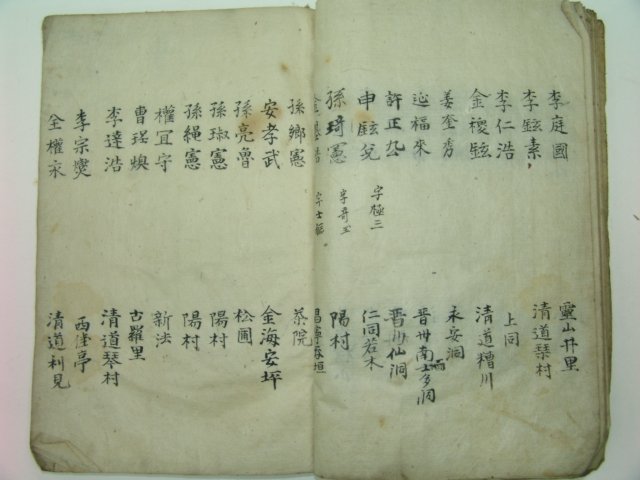 李庭國 靈山井里
李鉉素 清道琴村
李仁浩 上同
金稷鉉 清道糟川
姜奎秀 永安洞
福來 晋州南
許正 晋州仙洞
申鉉兌 字極三 仁同若木
孫琦憲 字奇玉 陽村
金基 字士 昌寧
孫鄉憲 茶院
安孝武 金海安坪
孫亮魯 松圃
孫琡憲 陽村
孫繩憲 陽村
權冝守 新法
曹瑶煥 古羅里
李達浩 清道琴村
李宗爕 西 亭
全權永 清道利見